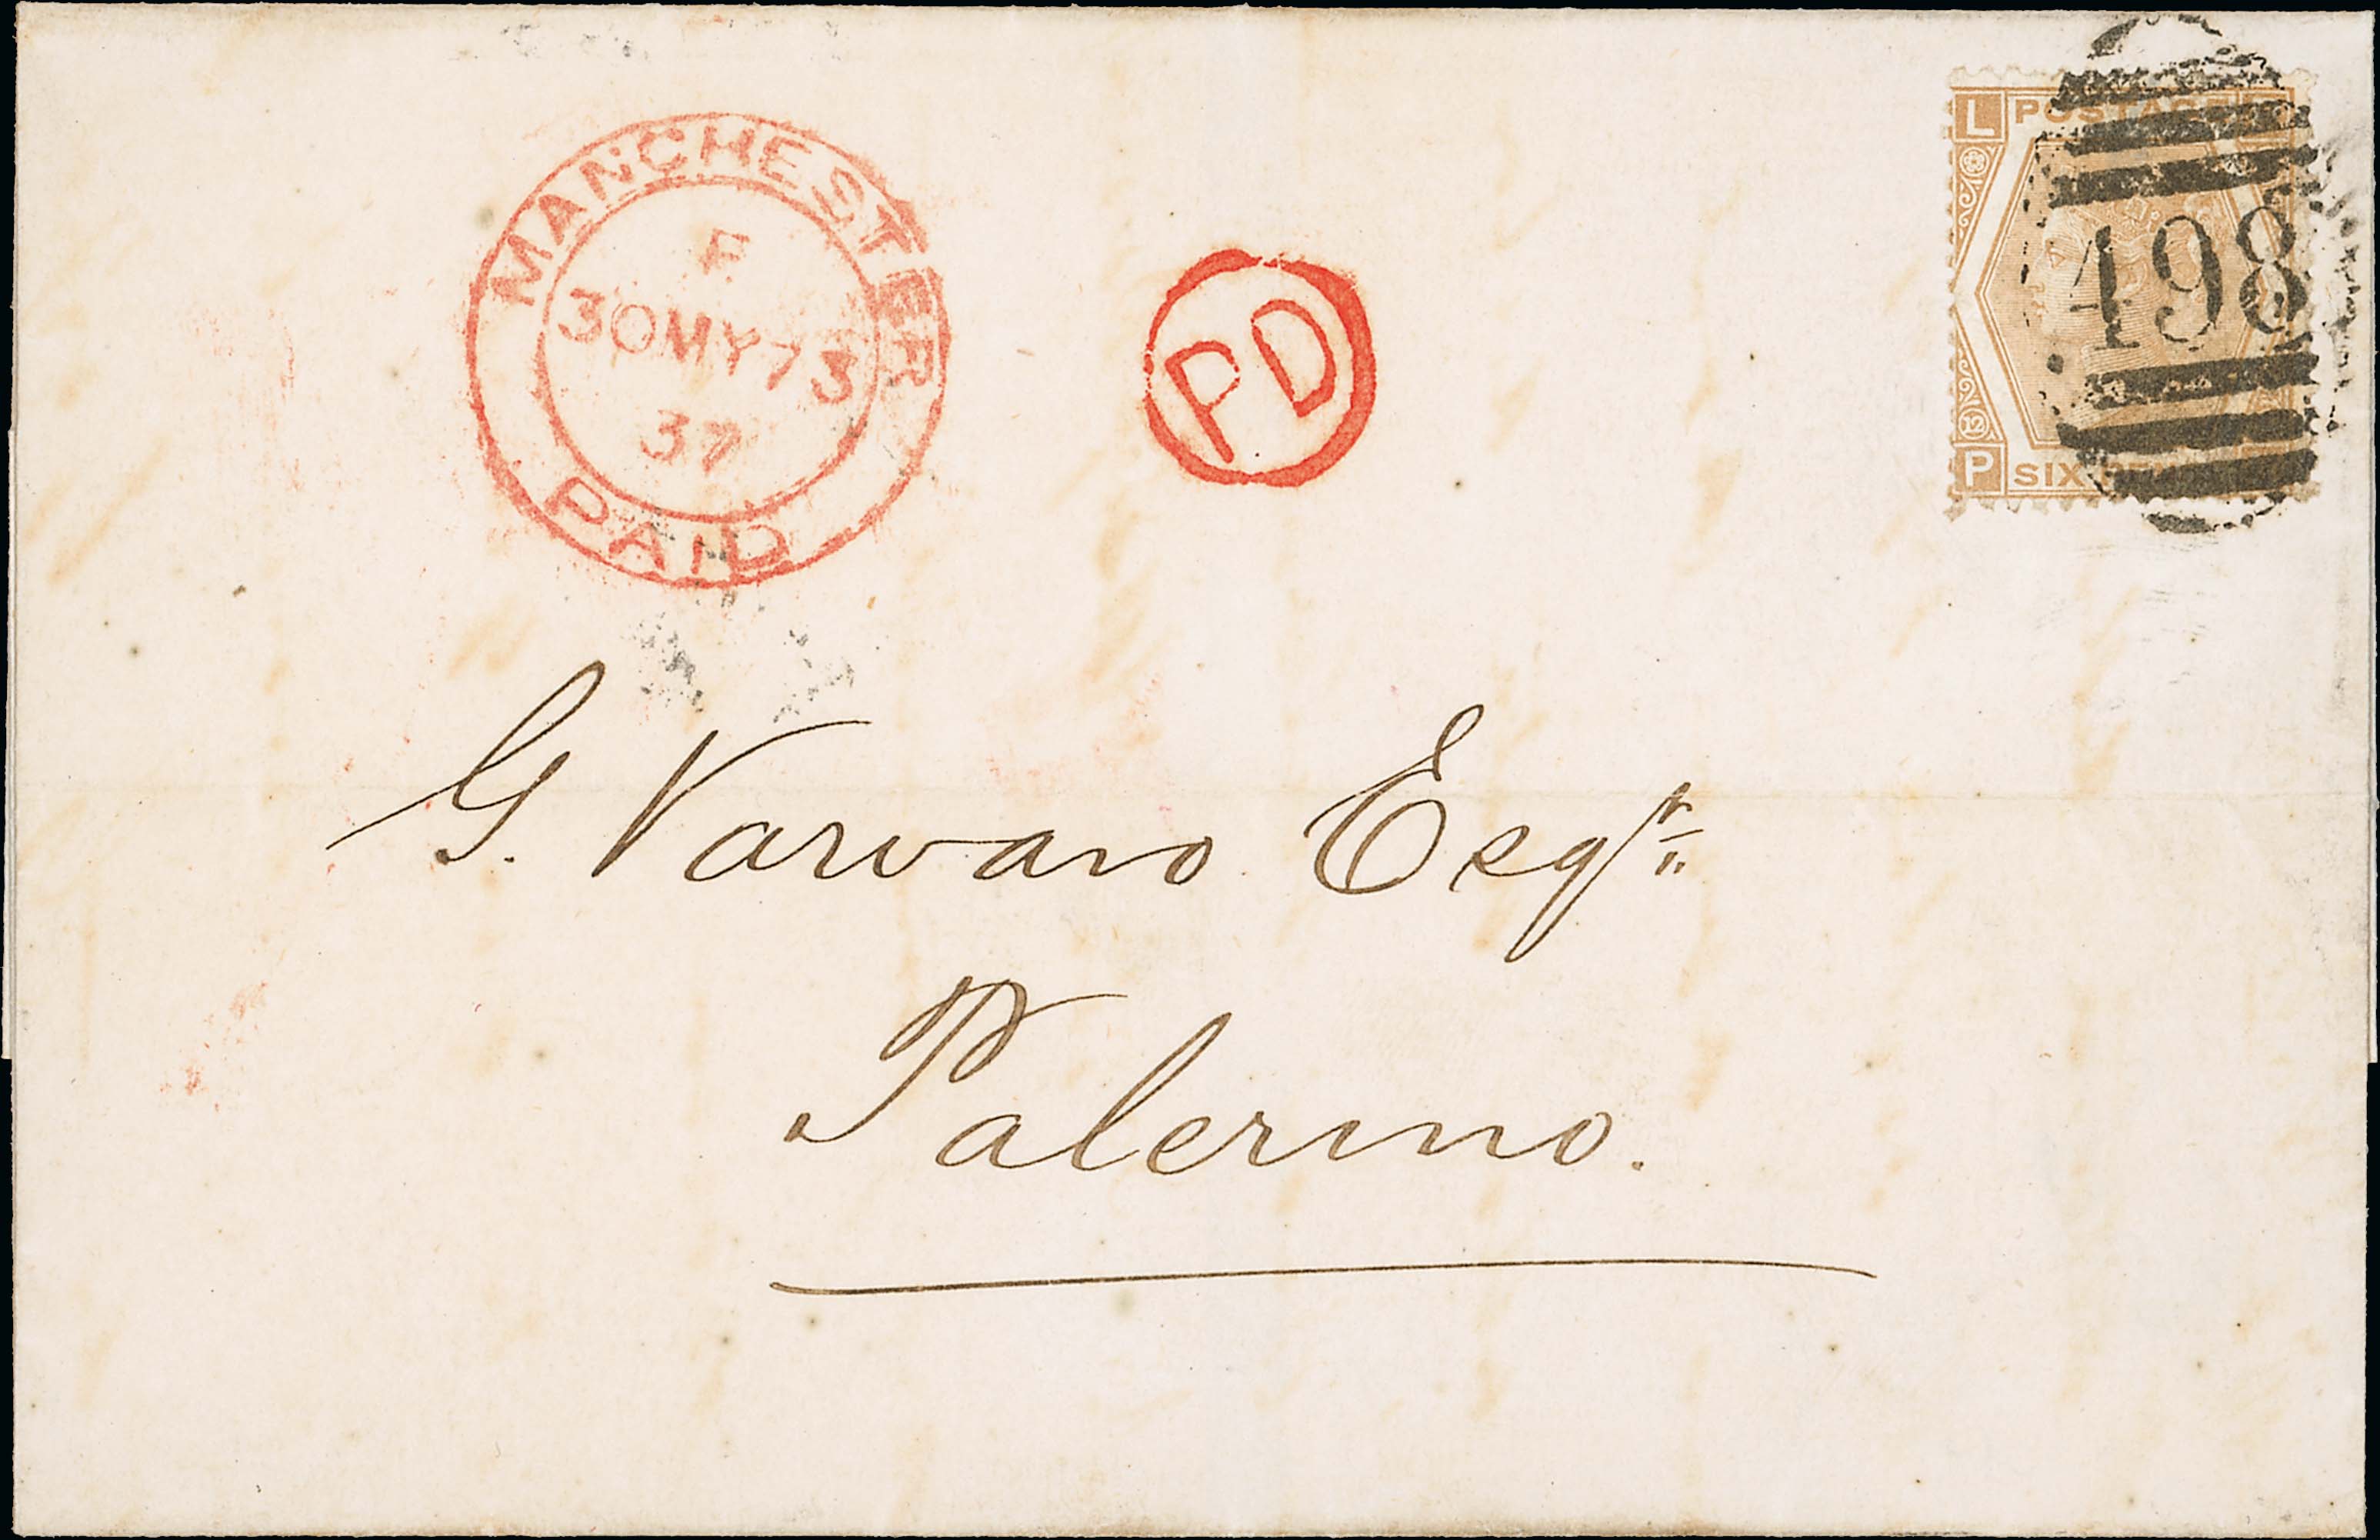 MANCHESTER
F
30MY73
37
PAID
PD
L POSTAGE
498
12
P SIX
G. Varvaro Esqr.
Palermo.